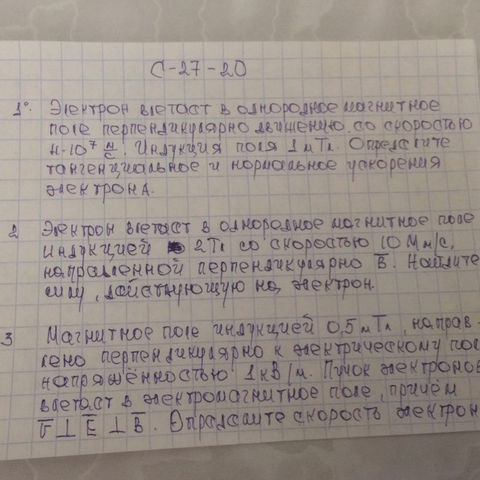 С-27-20
1°. Электрон влетает в однородное магнитное
поле перпендикулярно движению со скоростью
4·10⁷ м/с. Индукция поля 1 мТл. Определите
тангенциальное и нормальное ускорения
электрона.
2 Электрон влетает в однородное магнитное поле
индукцией 2Тл со скоростью 10 Мм/с,
направленной перпендикулярно B. Найдите
силу, действующую на электрон.
3 Магнитное поле индукцией 0,5 мТл, направ-
лено перпендикулярно к электрическому пол
напряжённостью 1 кВ/м. Пучок электронов
влетает в электромагнитное поле, причём
⊥ E ⊥ B. Определите скорость электрон